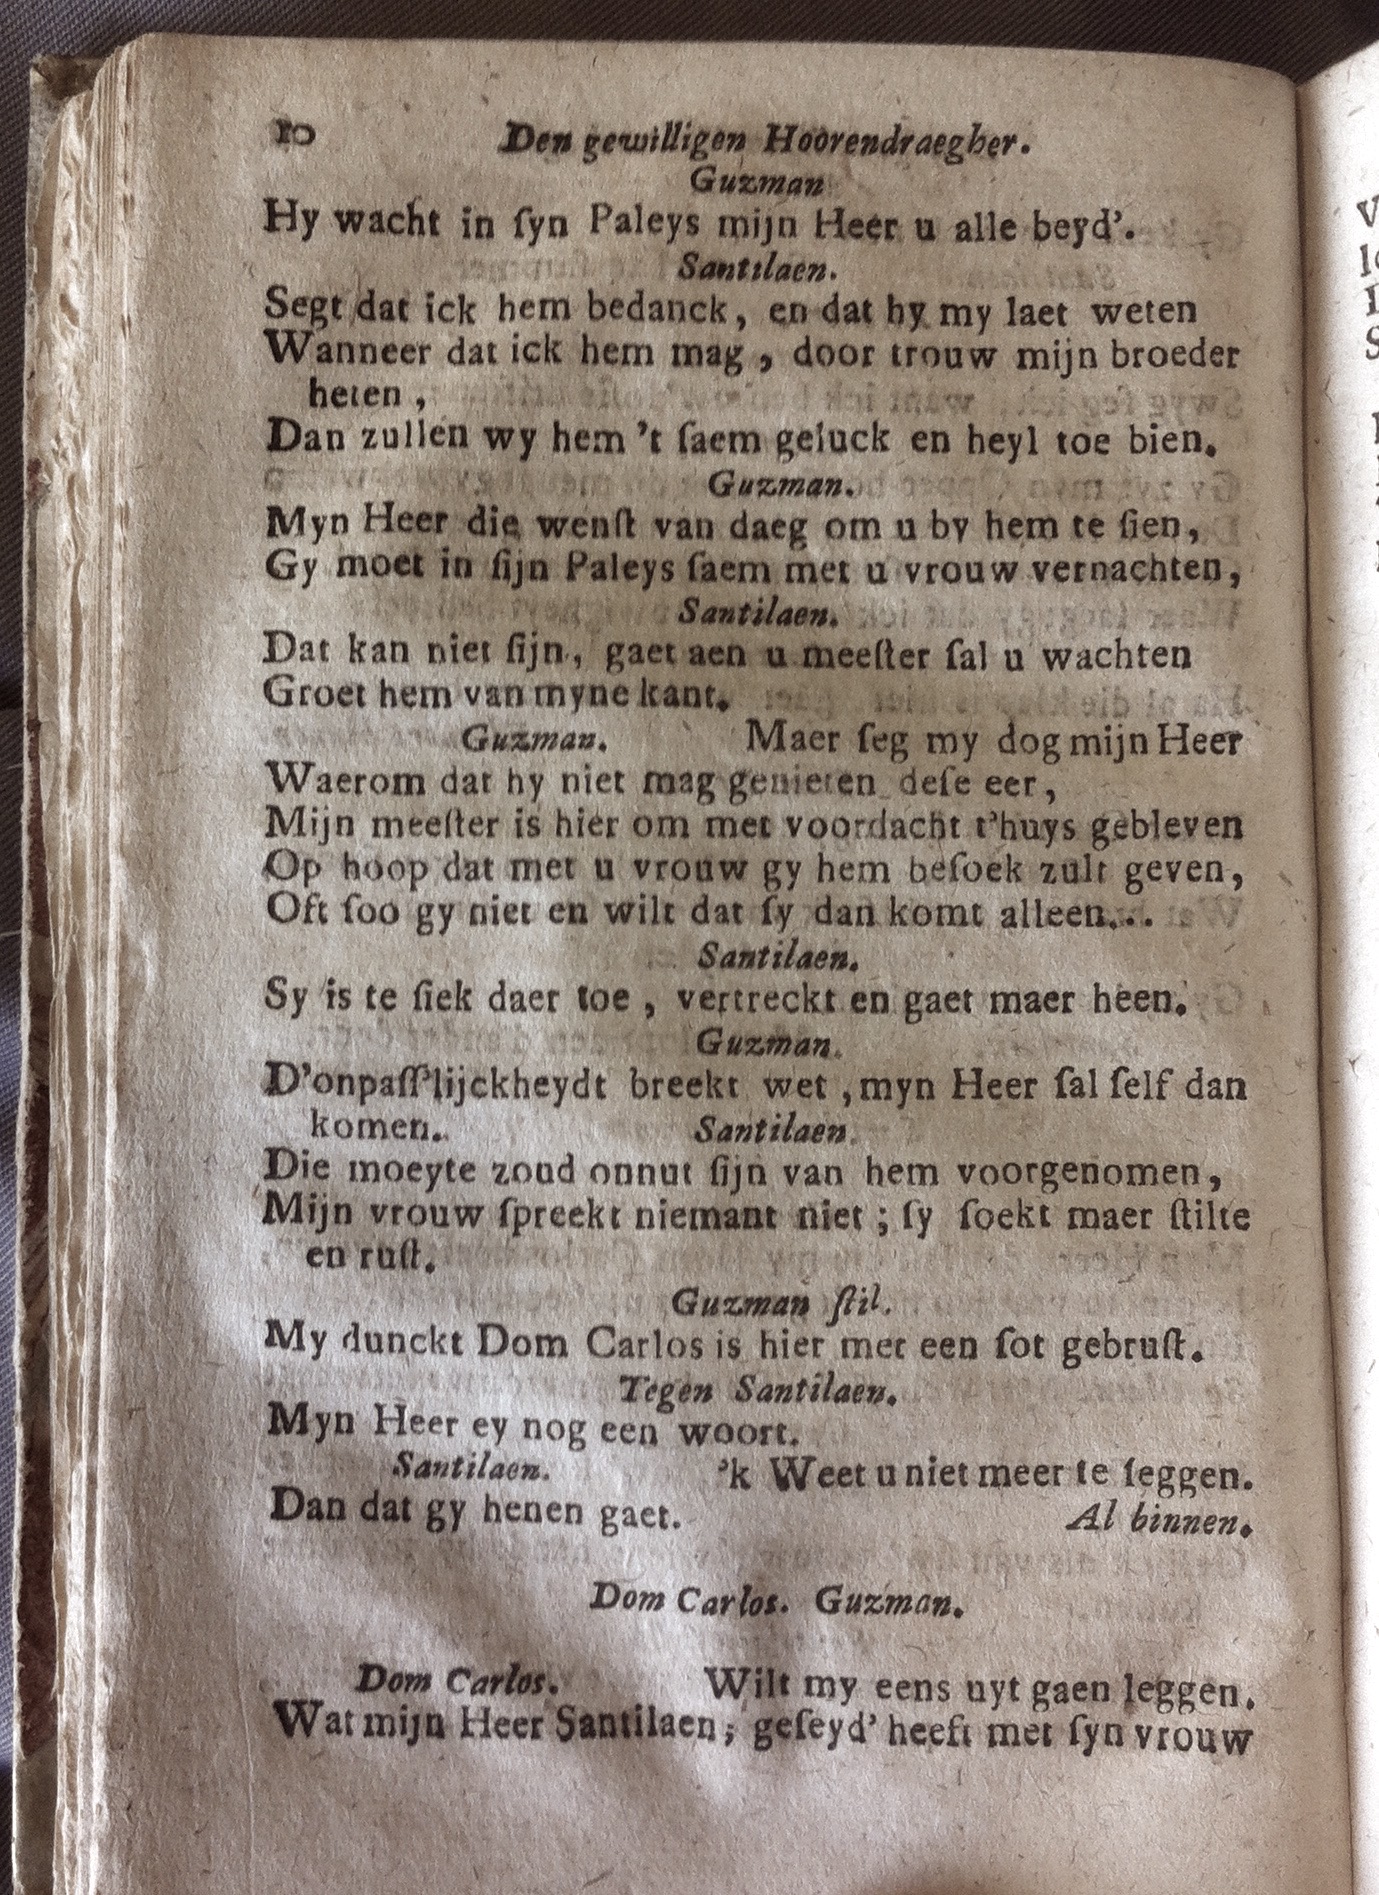 10 Den gewilligen Hoorendraegher.
Guzman
Hy wacht in ſyn Paleys mijn Heer u alle beyd'.
Santilaen.
Segt dat ick hem bedanck, en dat hy my laet weten
Wanneer dat ick hem mag, door trouw mijn broeder
heten,
Dan zullen wy hem 't ſaem geluck en heyl toe bien.
Guzman.
Myn Heer die wenſt van daeg om u by hem te ſien,
Gy moet in ſijn Paleys ſaem met u vrouw vernachten,
Santilaen.
Dat kan niet ſijn, gaet aen u meeſter ſal u wachten
Groet hem van myne kant.
Guzman. Maer ſeg my dog mijn Heer
Waerom dat hy niet mag genieten deſe eer,
Mijn meeſter is hier om met voordacht t'huys gebleven
Op hoop dat met u vrouw gy hem beſoek zult geven,
Oft ſoo gy niet en wilt dat ſy dan komt alleen...
Santilaen.
Sy is te ſiek daer toe, vertreckt en gaet maer heen.
Guzman.
D'onpaſſ'lijckheydt breekt wet, myn Heer ſal ſelf dan
komen. Santilaen.
Die moeyte zoud onnut ſijn van hem voorgenomen,
Mijn vrouw ſpreekt niemant niet; ſy ſoekt maer ſtilte
en ruſt.
Guzman ſtil.
My dunckt Dom Carlos is hier met een ſot gebruſt.
Tegen Santilaen.
Myn Heer ey nog een woort.
Santilaen. 'k Weet u niet meer te ſeggen.
Dan dat gy henen gaet. Al binnen.
Dom Carlos. Guzman.
Dom Carlos. Wilt my eens uyt gaen leggen.
Wat mijn Heer Santilaen; geſeyd' heeft met ſyn vrouw